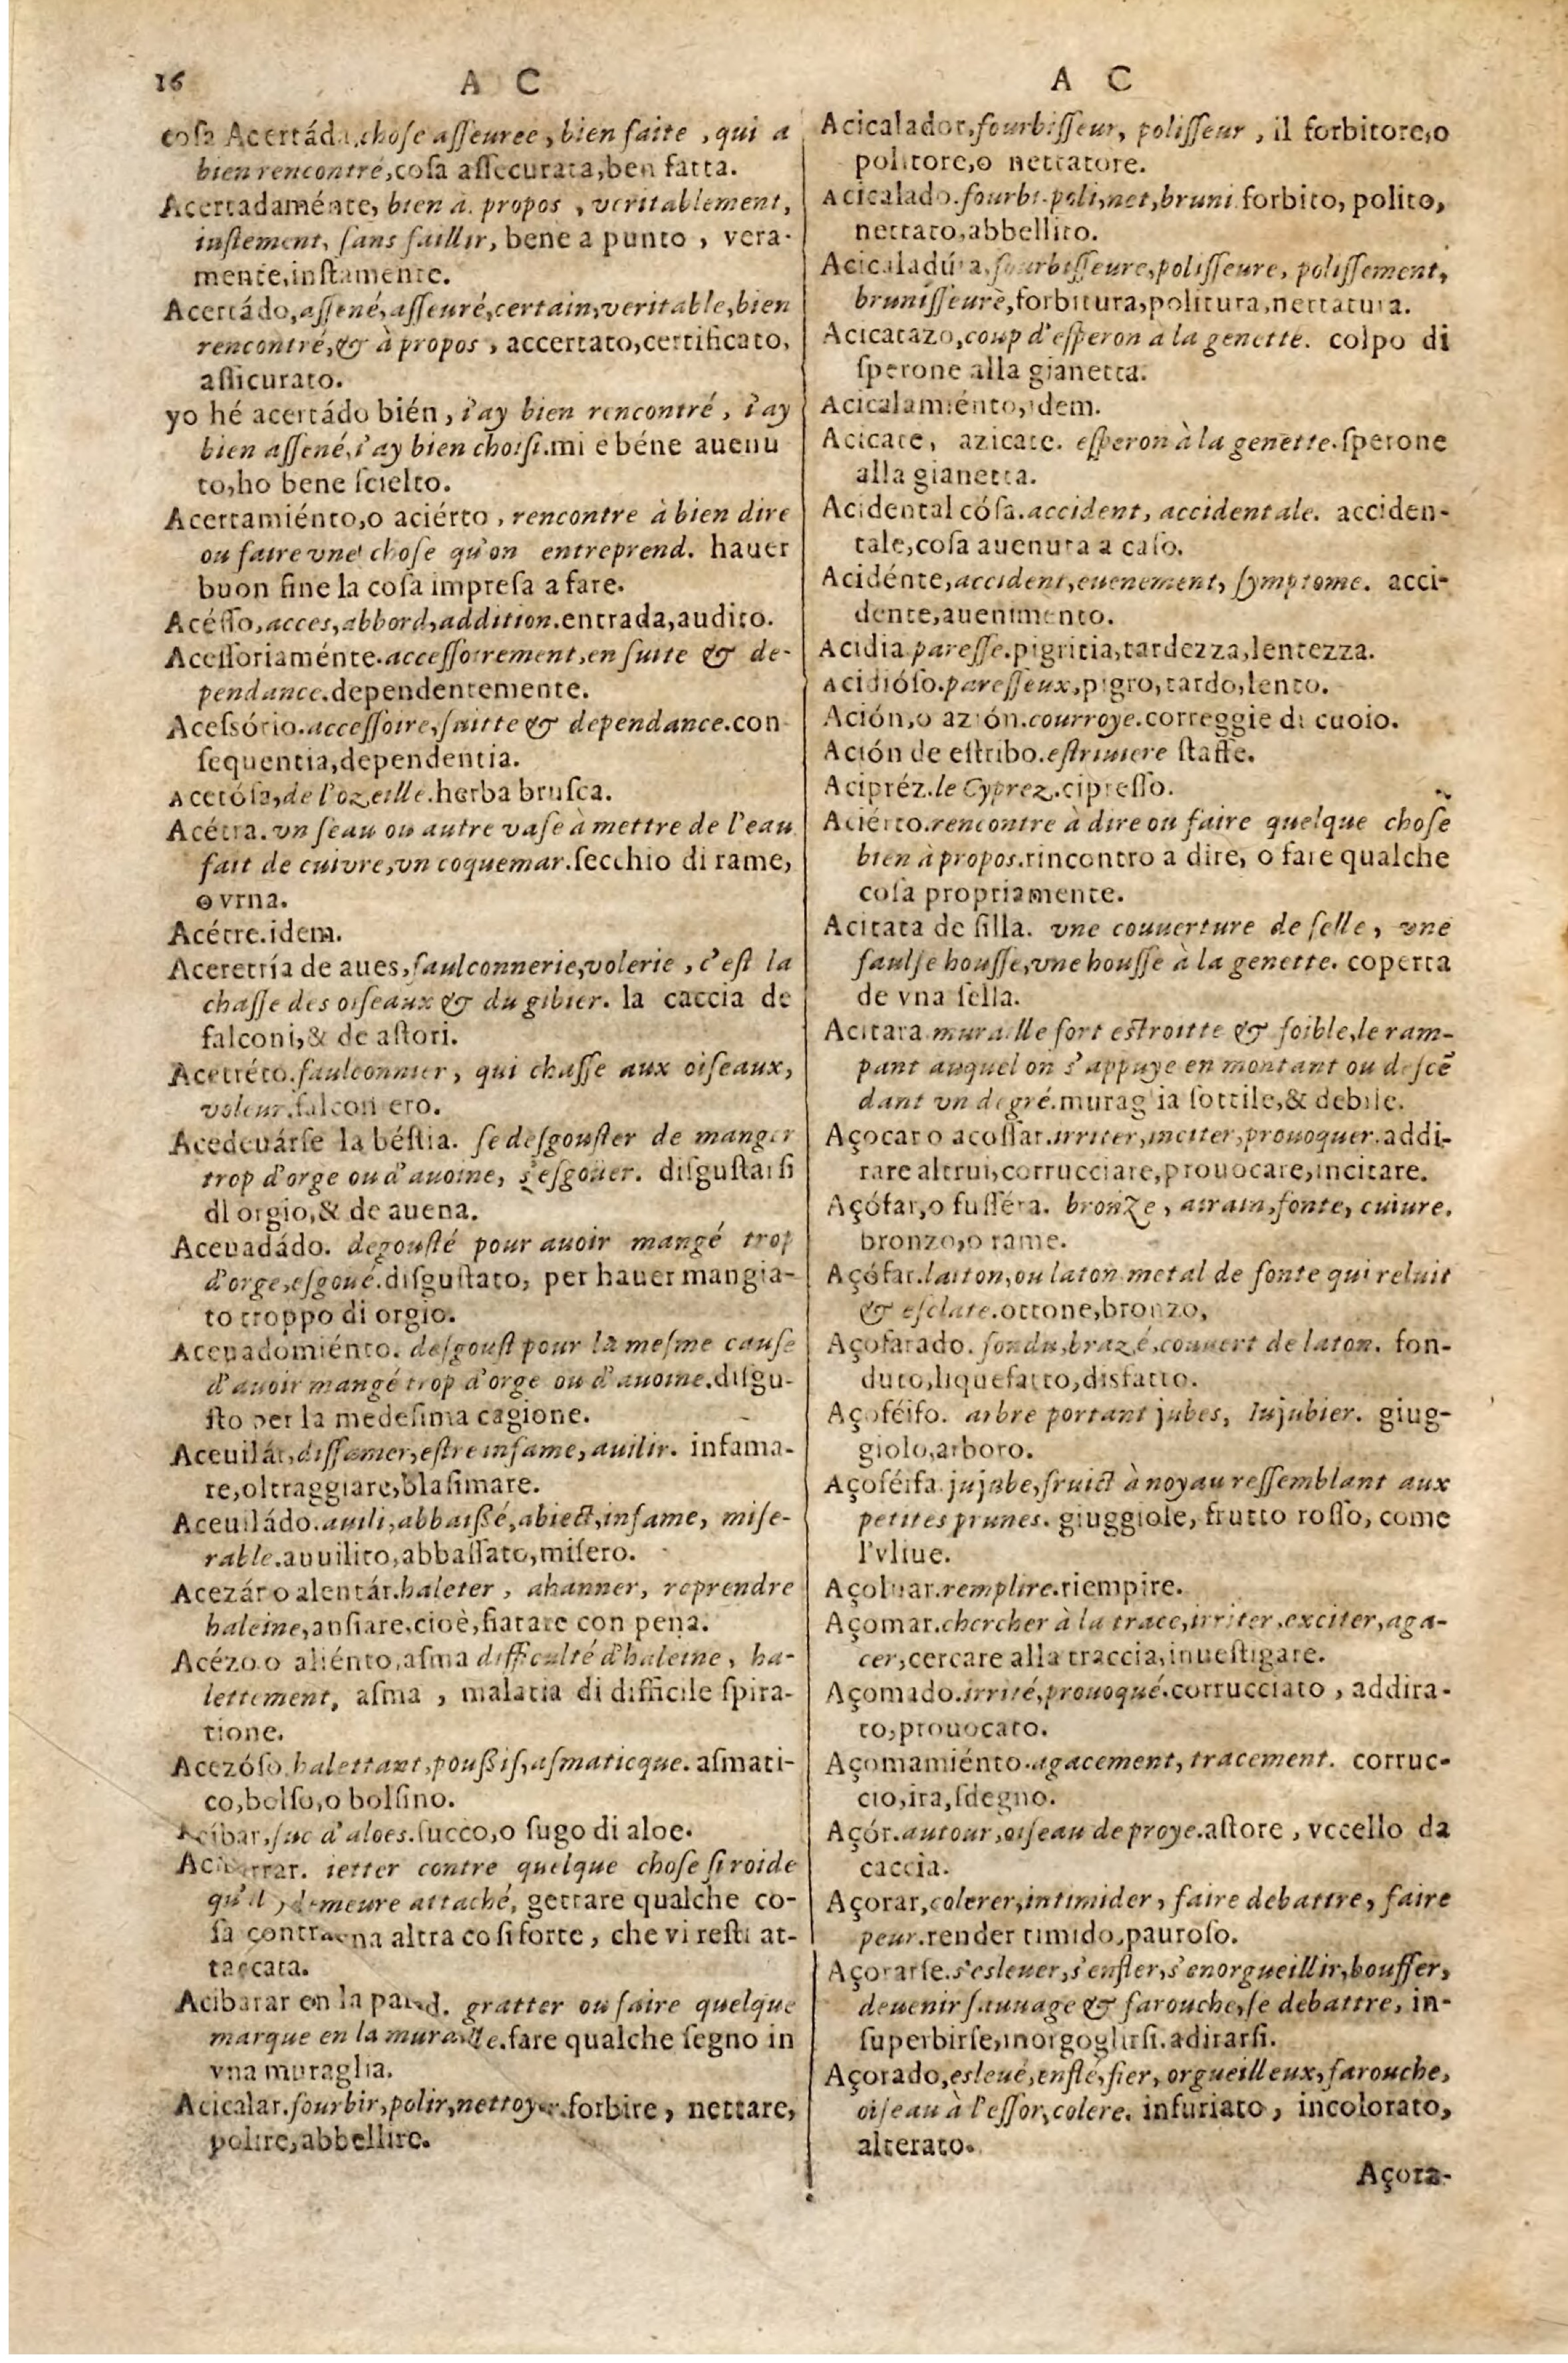 16
A C
cosa Acertáda, chose asseuree, bien faite, qui a
bien rencontré, cosa assecurata, ben fatta.
Acertadaménte, bien à propos, veritablement,
iustement, sans faillir, bene a punto, vera-
mente, instamente.
Acertádo, assené, asseuré, certain, veritable, bien
rencontré, & à propos, accertato, certificato,
assicurato.
yo hé acertádo bién, i'ay bien rencontré, i'ay
bien assené, i'ay bien choisi. mi e béne auenu
to, ho bene scielto.
Acertamiénto, o aciérto, rencontre à bien dire
ou faire vne chose qu'on entreprend. hauer
buon fine la cosa impresa a fare.
Acésso, acces, abbord, addition. entrada, audito.
Acessoriaménte. accessoirement, en suite & de-
pendance. dependentemente.
Acessório. accessoire, suitte & dependance. con
sequentia, dependentia.
Acetósa, de l'ozeille. herba brusca.
Acétra. vn seau ou autre vase à mettre de l'eau
fait de cuivre, vn coquemar. secchio di rame,
o vrna.
Acétre. idem.
Acetrería de aues, faulconnerie, volerie, c'est la
chasse des oiseaux & du gibier. la caccia de
falconi, & de astori.
Acetréro. faulconnier, qui chasse aux oiseaux,
voleur. falconiero.
Acedeuárse la béstia. se desgouster de manger
trop d'orge ou d'auoine, s'esgoüer. disgustarsi
di orgio, & de auena.
Aceuadádo. degousté pour auoir mangé trop
d'orge, esgoué. disgustato, per hauer mangia-
to troppo di orgio.
Aceuadomiénto. desgoust pour la mesme cause
d'auoir mangé trop d'orge ou d'auoine. disgu-
sto per la medesima cagione.
Aceuilár, diffamer, estre infame, auilir. infama-
re, oltraggiare, blasimare.
Aceuiládo. auili, abbaissé, abiect, infame, mise-
rable. auuilito, abbassato, misero.
Acezár o alentár. haleter, ahanner, reprendre
haleine, ansiare, cioè, fiatare con pena.
Acézo o aliénto, asma difficulté d'haleine, ha-
lettement, asma, malatia di difficile spira-
tione.
Acezóso. halettant, poussif, asmaticque. asmati-
co, bolso, o bolsino.
Acíbar, suc d'aloes. succo, o sugo di aloe.
ietter contre quelque chose si roide
qu'il y demeure attaché, gettare qualche co-
sa contra vna altra cosi forte, che vi resti at-
taccata.
Acibarar en la pared. gratter ou faire quelque
marque en la muraille. fare qualche segno in
vna muraglia.
Acicalar. fourbir, polir, nettoyer. forbire, nettare,
polire, abbellire.
A C
Acicalador, fourbisseur, polisseur, il forbitore, o
politore, o nettatore.
Acicalado. fourbi, poli, net, bruni. forbito, polito,
nettato, abbellito.
Acicaladúra, fourbisseure, polisseure, polissement,
brunisseure, forbitura, politura, nettatura.
Acicatazo, coup d'esperon à la genette. colpo di
sperone alla gianetta.
Acicalamiénto, idem.
Acicate, azicate. esperon à la genette. sperone
alla gianetta.
Acidental cósa. accident, accidentale. acciden-
tale, cosa auenuta a caso.
Acidénte, accident, euenement, symptome. acci-
dente, auenimento.
Acidia. paresse. pigritia, tardezza, lentezza.
Acidióso. paresseux, pigro, tardo, lento.
Ación, o azión. courroye. correggie di cuoio.
Ación de estribo. estriuiere staffe.
Aciipréz. le Cyprez. cipresso.
Aciérto. rencontre à dire ou faire quelque chose
bien à propos. rincontro a dire, o fare qualche
cosa propriamente.
Acitata de silla. vne couuerture de selle, vne
faulse housse, vne housse à la genette. coperta
de vna sella.
Acitara muraille fort estroitte & foible, le ram-
pant auquel on s'appuye en montant ou descē
dant vn degré. muraglia sottile, & debile.
Açocar o acossar. irriter, inciter, prouoquer. addi-
rare altrui, corrucciare, prouocare, incitare.
Açófar, o fusléra. bronze, airain, fonte, cuiure.
bronzo, o rame.
Açófar. laiton, ou laton metal de fonte qui reluit
& esclate. ottone, bronzo,
Açofarado. fondu, brazé, couuert de laton. fon-
duto, liquefatto, disfatto.
Açoféifo. arbre portant jubes, Iujubier. giug-
giolo, arboro.
Açoféifa. jujube, fruict à noyau ressemblant aux
petites prunes. giuggiole, frutto rosso, come
l'vliue.
Açoluar. remplire. riempire.
Açomar. chercher à la trace, irriter, exciter, aga-
cer, cercare alla traccia, inuestigare.
Açomado. irrité, prouoqué. corrucciato, addira-
to, prouocato.
Açomamiénto. agacement, tracement. corruc-
cio, ira, sdegno.
Açór. autour, oiseau de proye. astore, vccello da
caccia.
Açorar, colerer, intimider, faire debattre, faire
peur. render timido, pauroso.
Açorarse. s'esleuer, s'enfler, s'enorgueillir, bouffer,
deuenir sauuage & farouche, se debattre, in-
superbirse, inorgoglirsi. adirarsi.
Açorado, esleué, enflé, fier, orgueilleux, farouche,
oiseau à l'essor, colere. infuriato, incolorato,
alterato.
Açora-